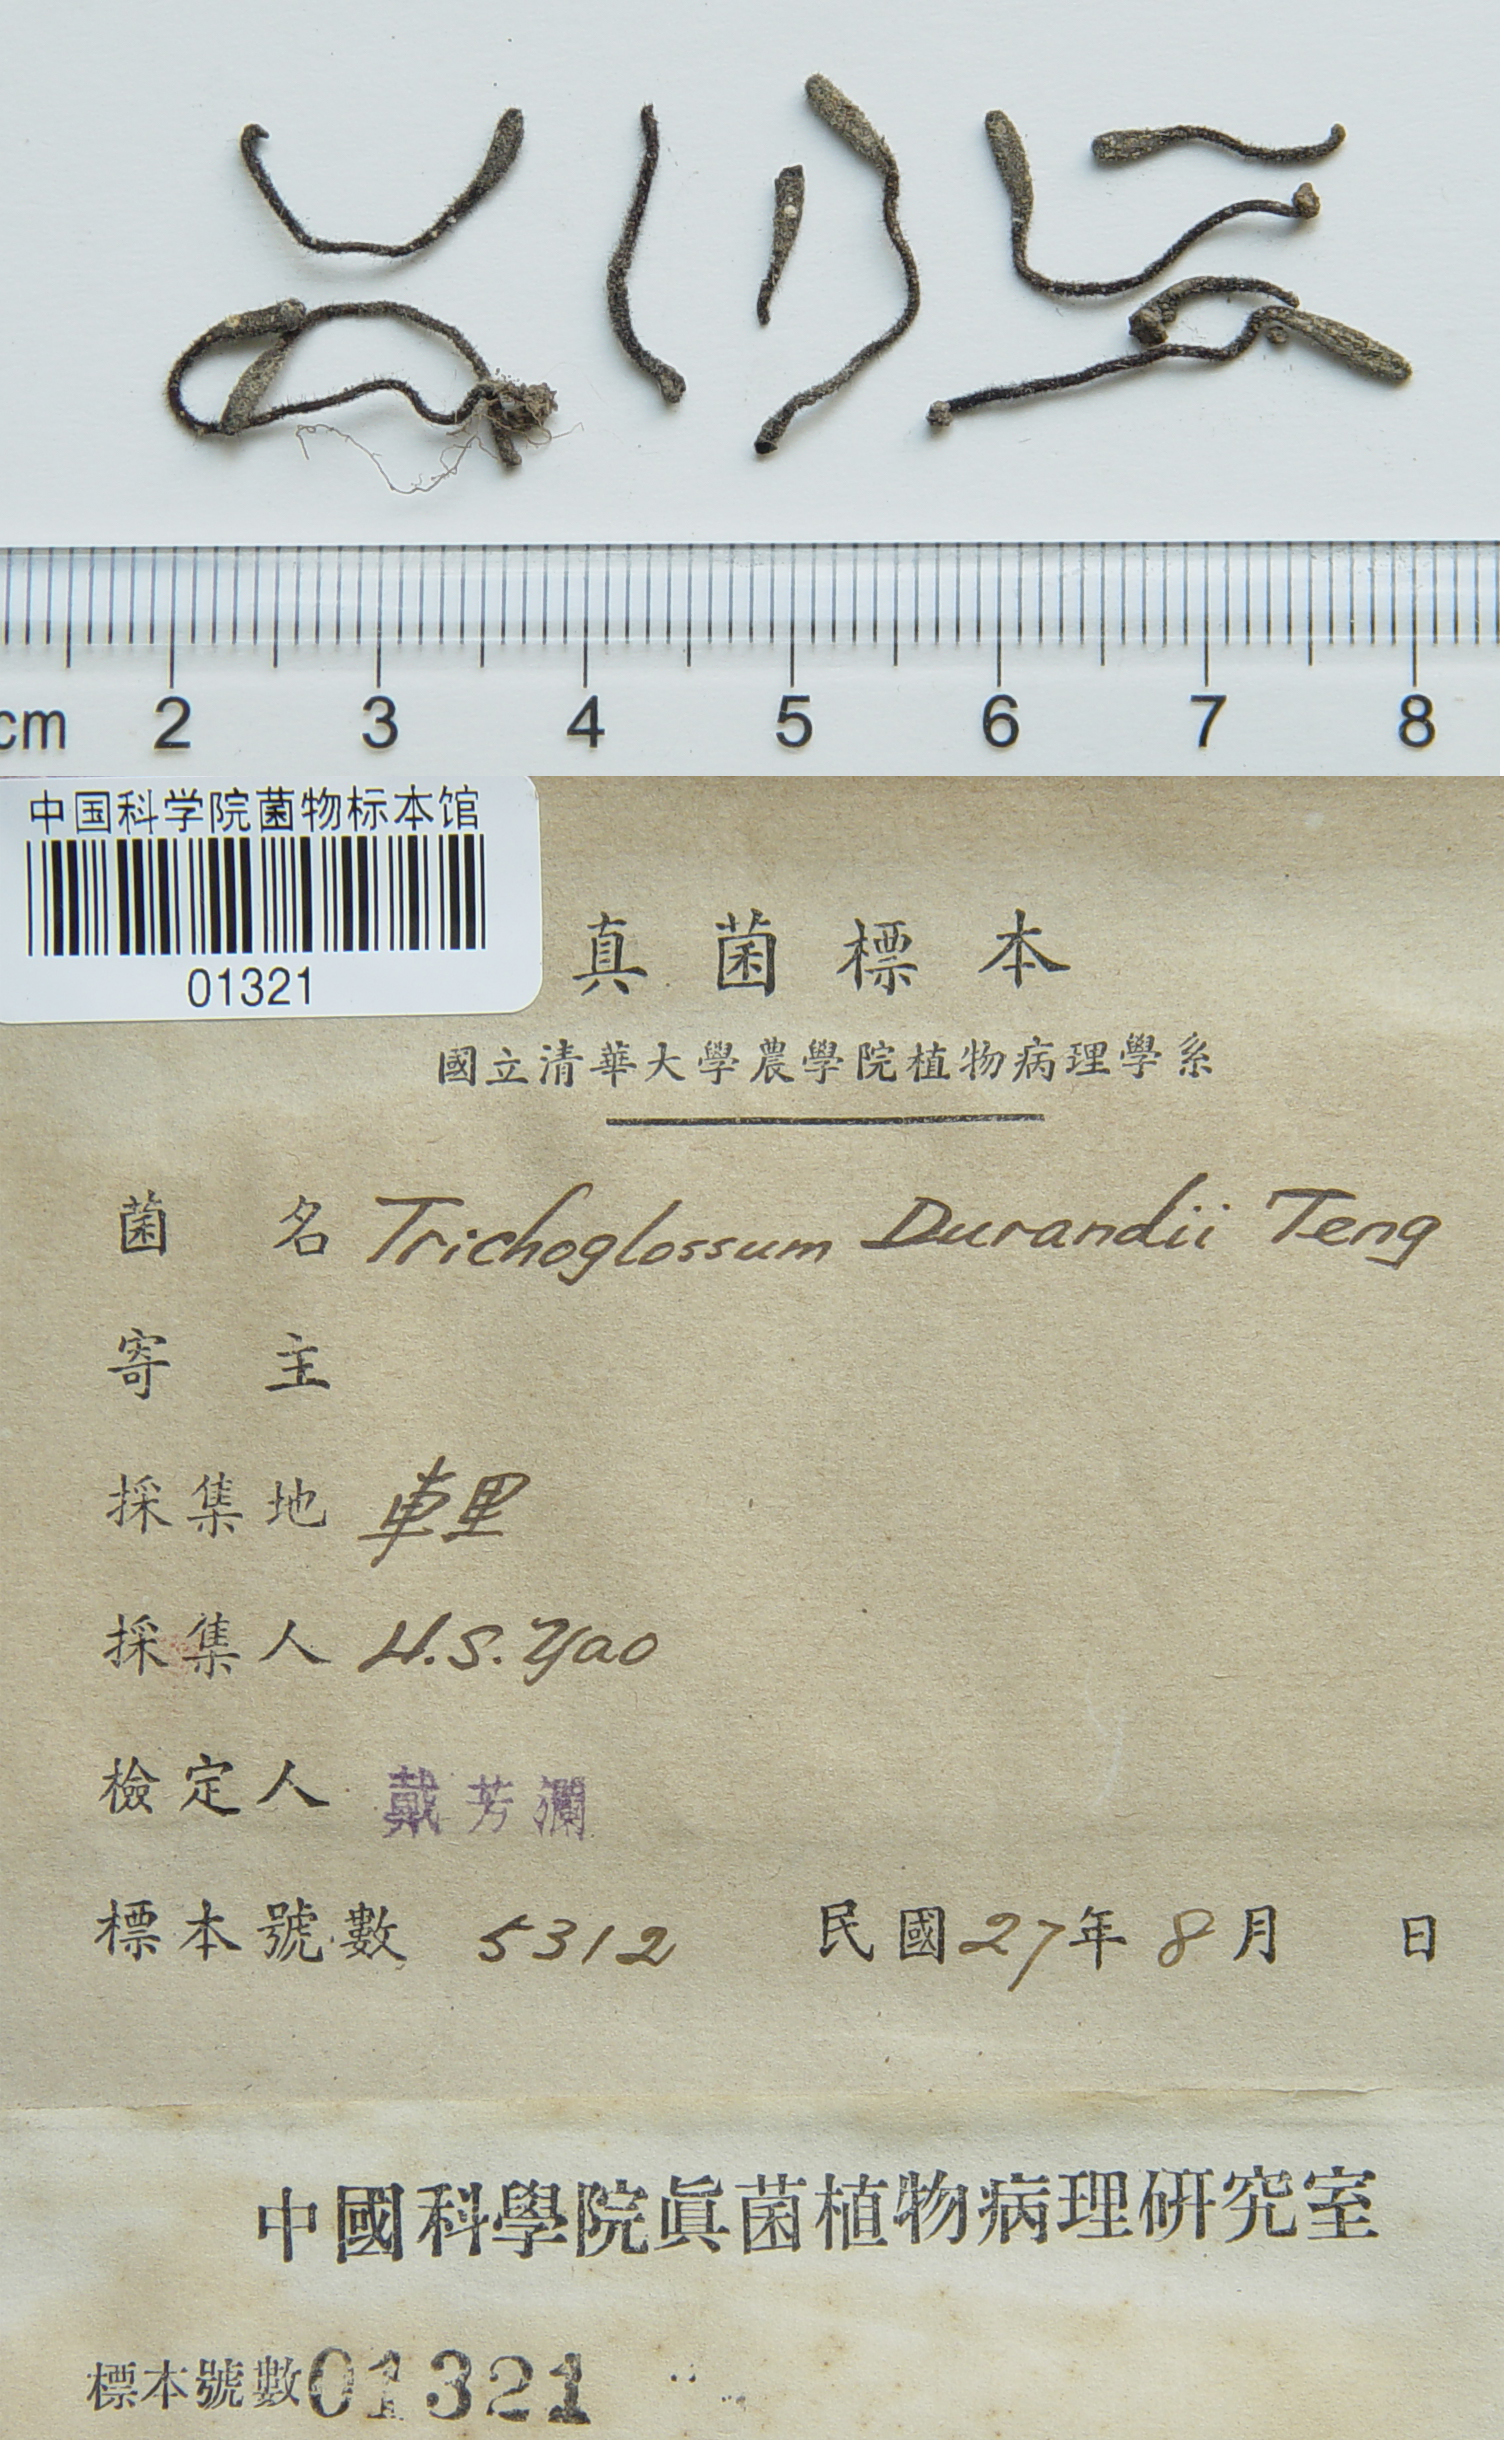 cm 2 3 4 5 6 7 8
中国科学院菌物标本馆
01321
真菌標本
國立清華大學農學院植物病理學系
菌名 Trichoglossum Durandii Teng
寄主
採集地 車里
採集人 H.S. Yao
檢定人 戴芳瀾
標本號數 5312 民國27年8月 日
中國科學院眞菌植物病理研究室
標本號數01321